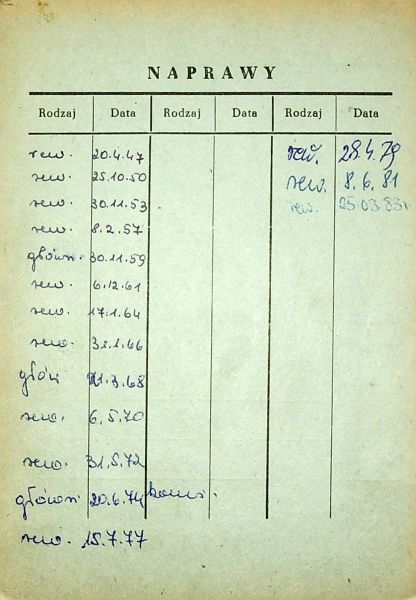 NAPRAWY
Rodzaj Data Rodzaj Data Rodzaj Data
rew. 20.4.47
rew. 25.10.50
rew. 30.11.53
rew. 8.2.57
główn. 30.11.59
rew. 6.12.61
rew. 17.1.64
rew. 31.1.66
głów 21.3.68
rew. 6.5.70
rew. 31.5.72
główn 20.6.74
rew. 15.7.77
rew. 28.4.79
rew. 8.6.81
rew. 25.03.83r